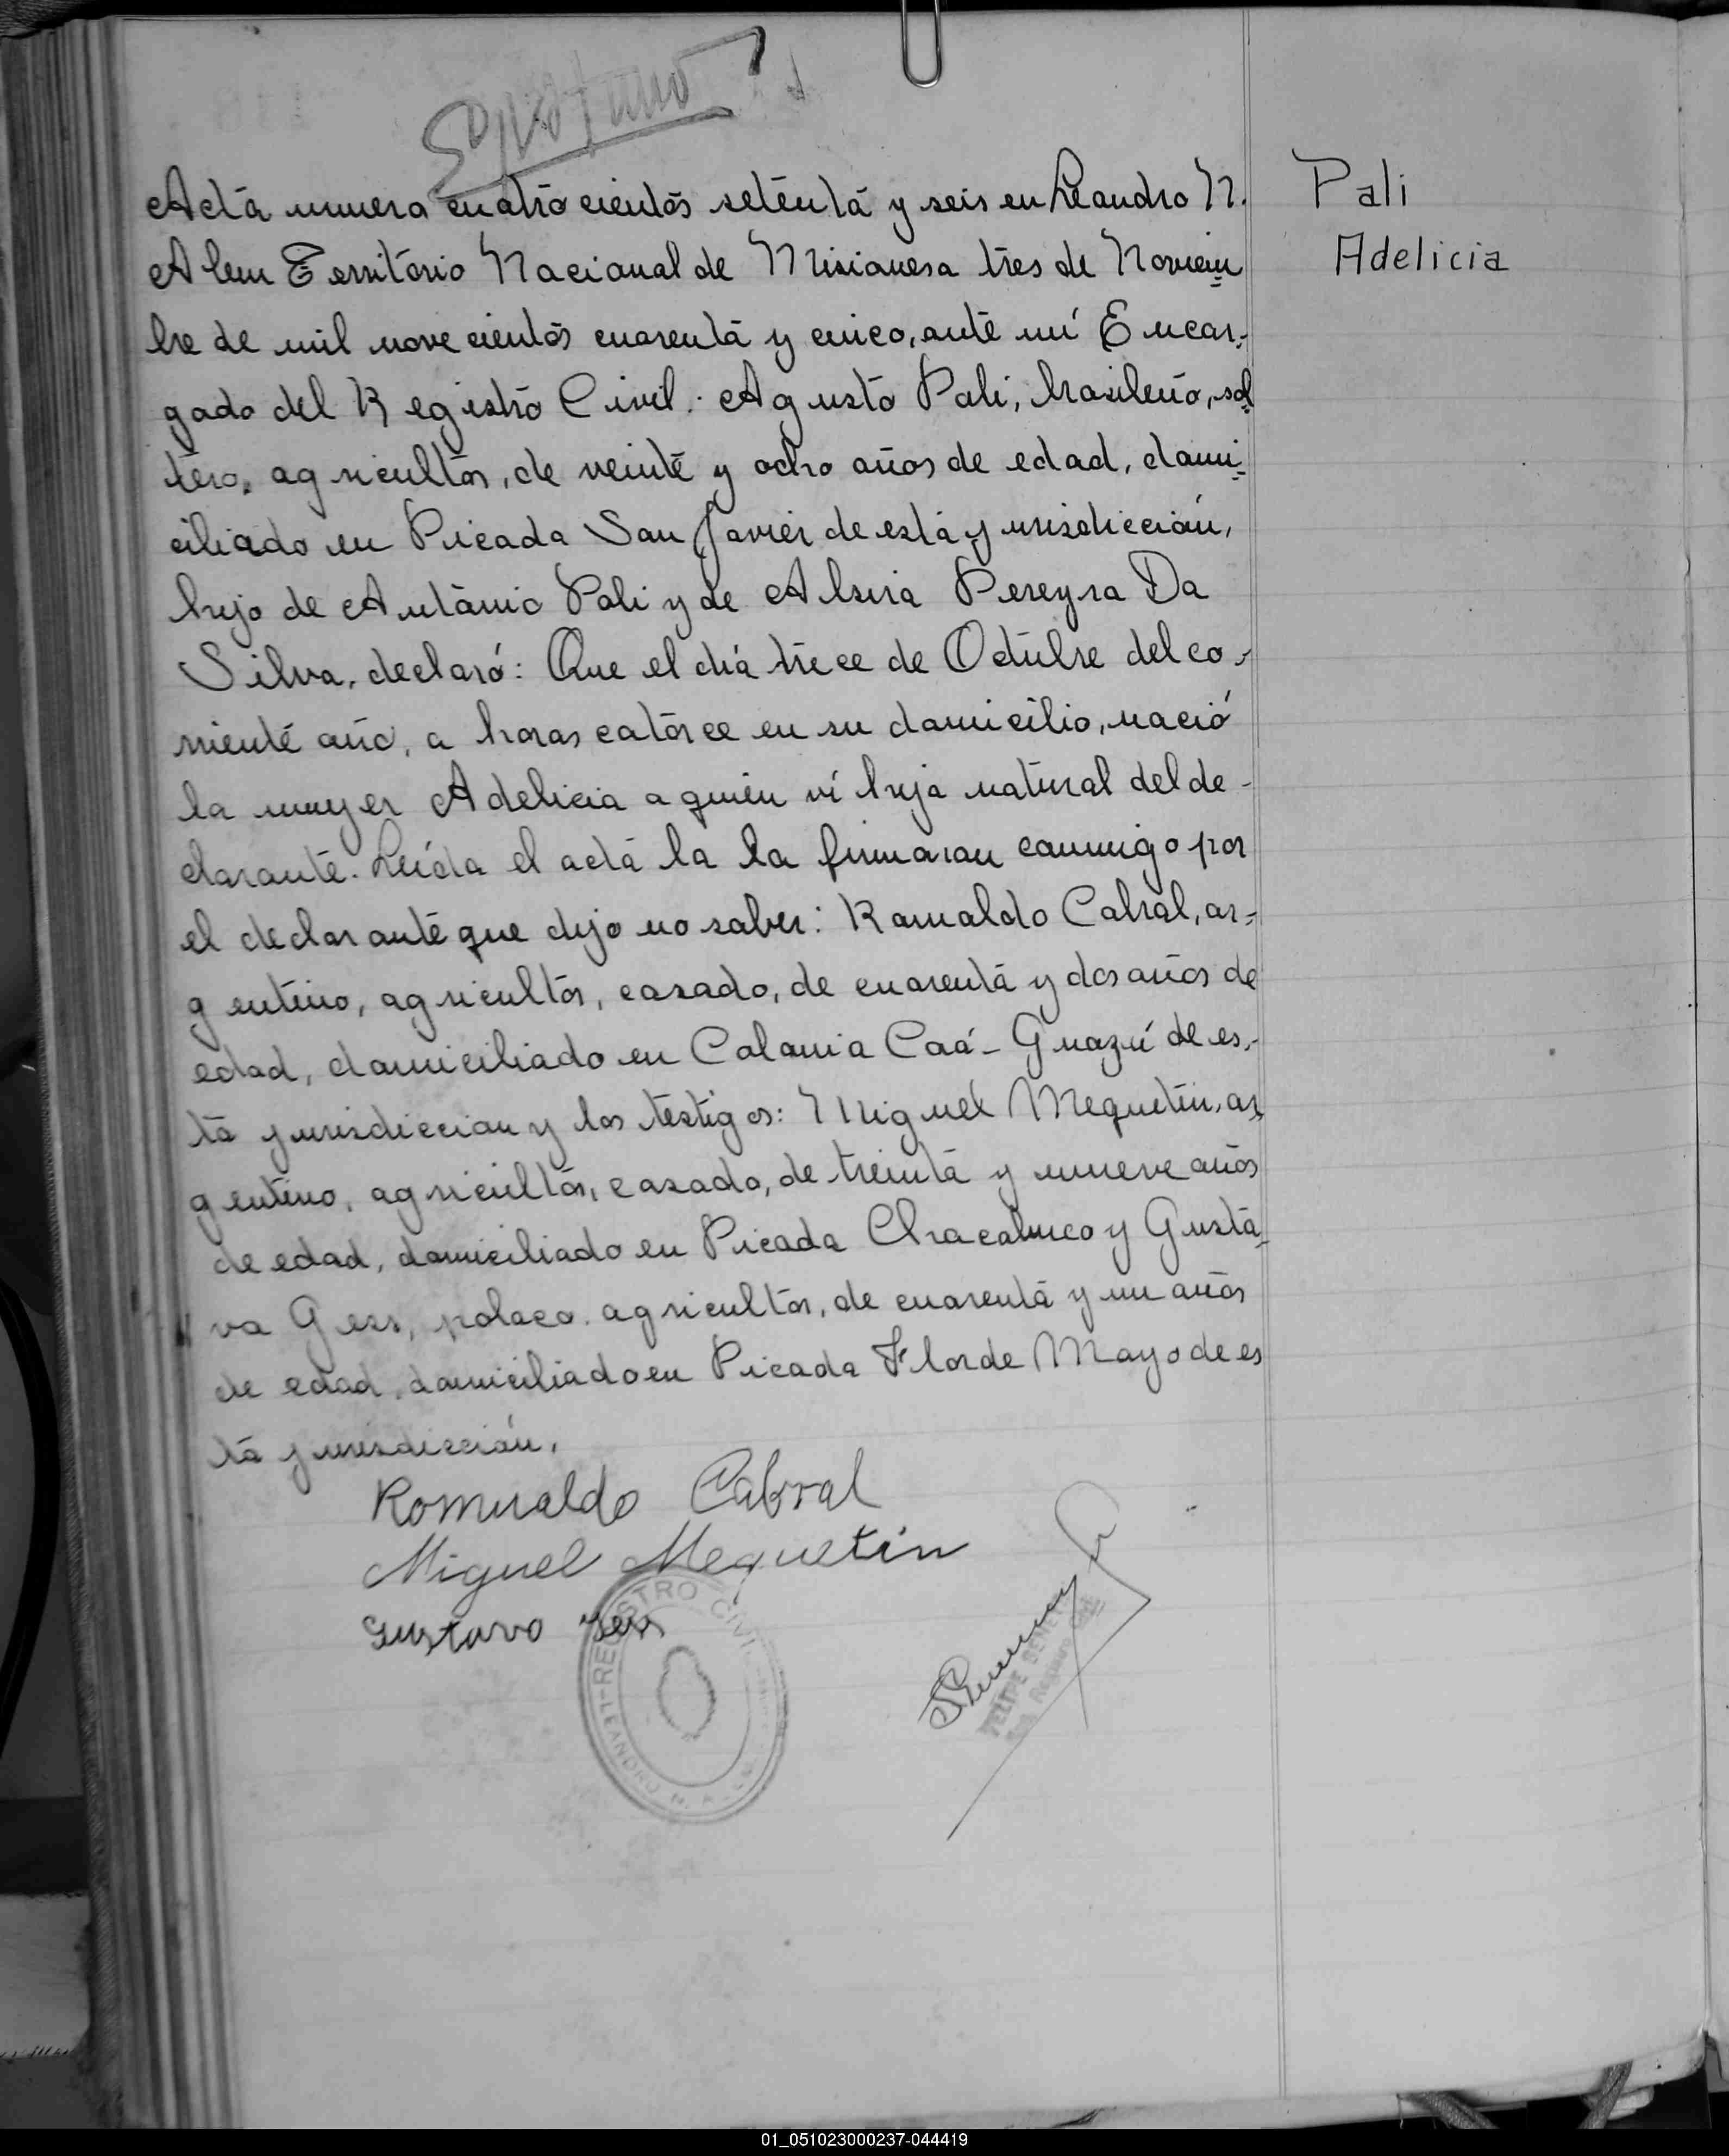 Pali
Adelicia
Acta numero cuatro cientos setenta y seis en Leandro N.
Alem Territorio Nacional de Misiones a tres de Noviem
bre de mil nove cientos cuarenta y cinco, ante mí Encar-
gado del Registro Civil: Agusto Pali, brasileño, sol
tero, agricultor, de veinte y ocho años de edad, domi-
ciliado en Picada San Javier de esta yurisdicción,
hijo de Antonio Pali y de Alsira Pereyra Da
Silva, declaró: Que el día trece de Octubre del co-
rriente año, a horas catorce en su domicilio, nació
la muyer Adelicia a quién ví hija natural del de-
clarante. Leída el acta la la firmaron conmigo por
el declarante que dijo no saber: Romualdo Cabral, ar-
gentino, agricultor, casado, de cuarenta y dos años de
edad, domiciliado en Colonia Caá-Guazú de es-
ta yurisdiccion y los testigos: Miguel Mequetin, ar
gentino, agricultor, casado, de treinta y nueve años
de edad, domiciliado en Picada Chacabuco y Gusta
vo Gess, polaco, agricultor, de cuarenta y un años
de edad, domiciliado en Picada Flor de Mayo de es
ta yurisdicción.
Romualdo Cabral
Miguel Mequetin
Gustavo Gess
REGISTRO CIVIL
LEANDRO N. ALEM
FELIPE
01_051023000237-044419